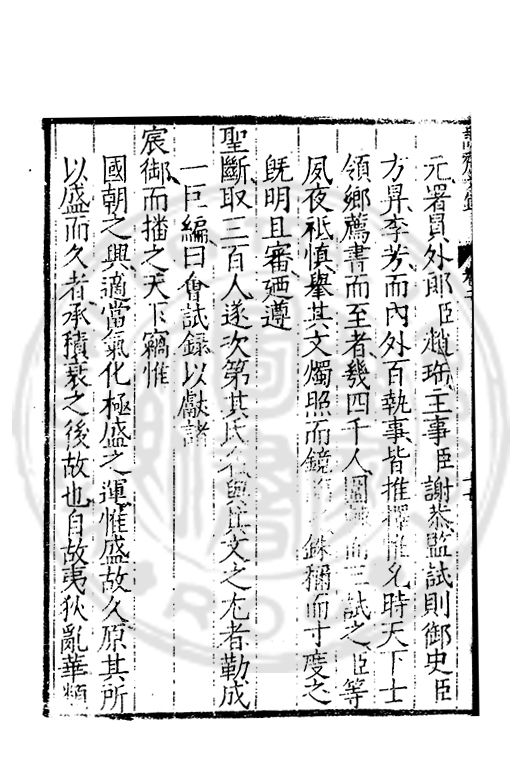 元署員外郎臣趙珤主事臣謝恭監試則御史臣
方昇李芳而內外百執事皆推擇惟允時天下士
領鄉薦書而至者幾四千人而三試之臣等
夙夜祗慎舉其文燭照而鏡銖稱而寸度之
旣明且審廼遵
聖斷取三百人遂次第其氏名與其文之尤者勒成
一巨編曰會試錄以獻諸
宸御而播之天下竊惟
國朝之興適當氣化極盛之運惟盛故久原其所
以盛而久者承積衰之後故也自故夷狄亂華類